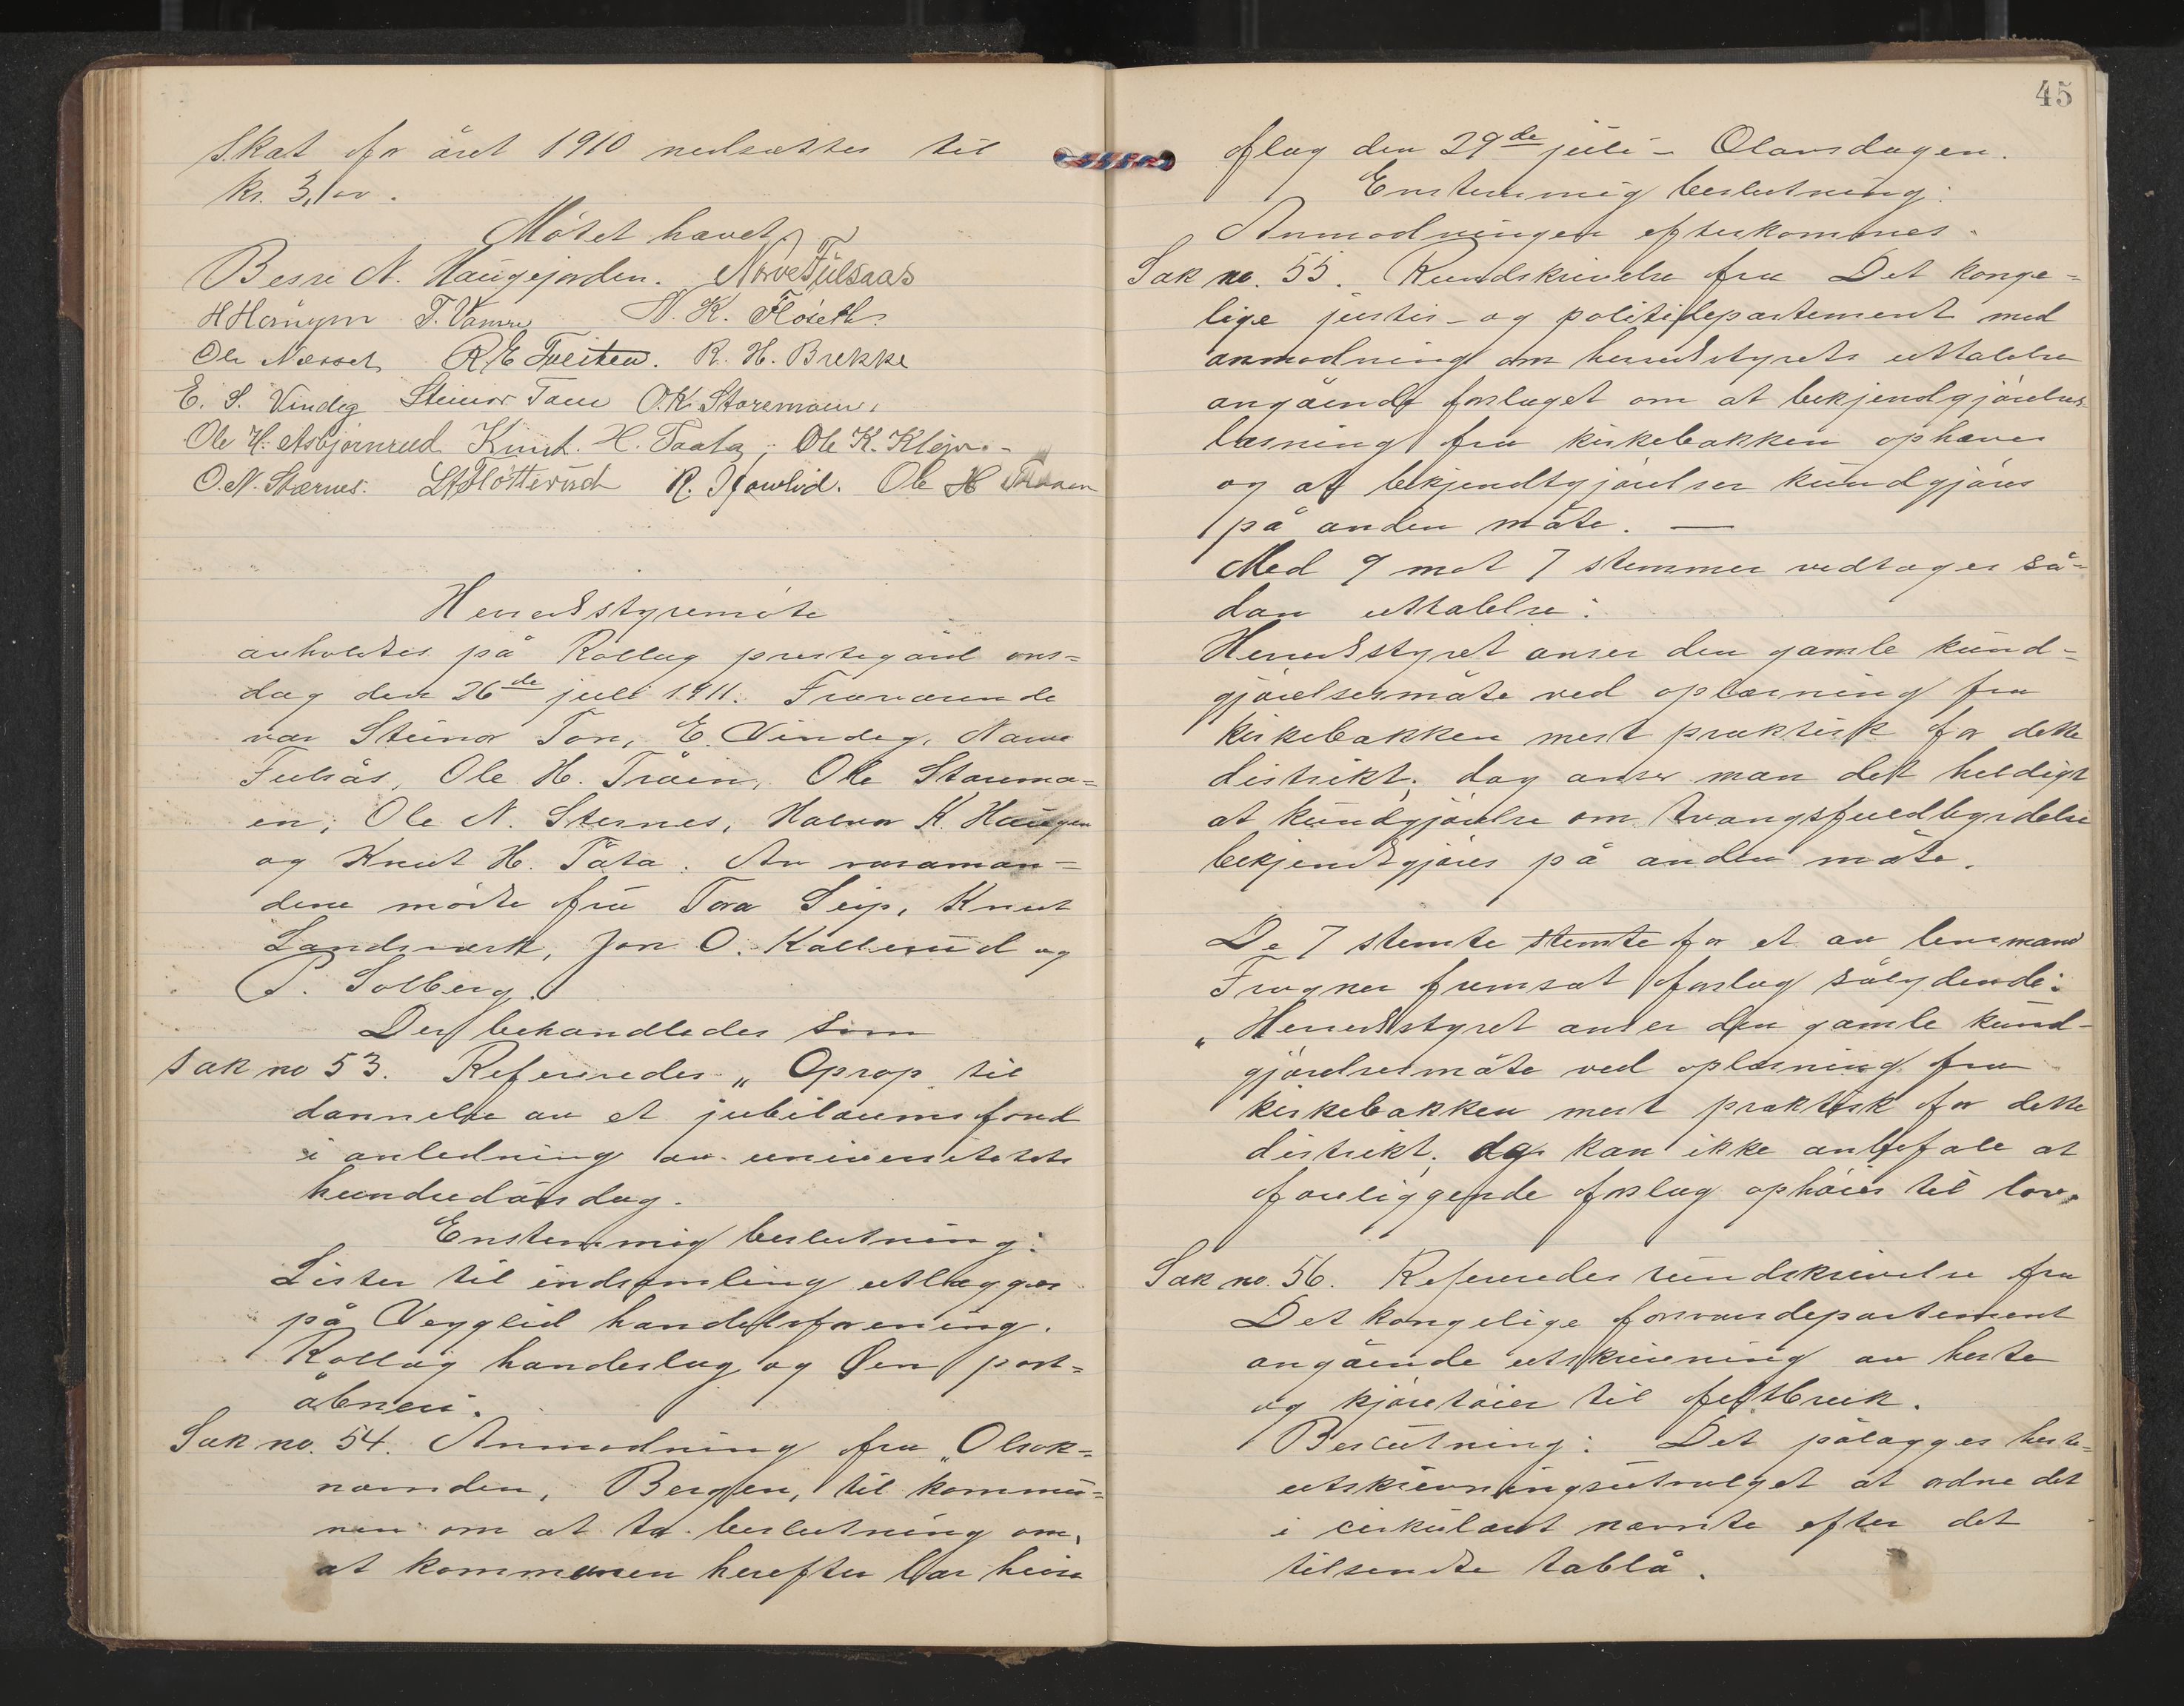 skat for året 1910 nedsættes til
kr. 3,00.
Møtet hævet.
Besse N. Haugejorden. Narve Fulsaas
T. Vamre N. K. Fløseth.
Ole Næsset R E Tveiten. R. H. Brekke
E. S. Vindeg Steinar Toen O. K. Storemoen,
Ole H. Asbjørnrud Knut. H. Taata, Ole K. Klejva
O. N. Stærnes. R. Ole H Traaen
Herredstyremøte
avholdtes på Rollag prestegård ons=
dag den 26de juli 1911. Fraværende
var Steinar Ton, E. Vindeg, Narve
Fulsås, Ole H. Tråen, Ole Storemo=
en, Ole N. Sternes, Halvor K. Haugen
og Knut H. Tåta. Av varaman=
dene mødte fru Tora Seip, Knut
Landsverk, Jon O. Kollerud og
P. Solberg.
Der behandledes som
Sak no 53. Referedes „Oprop til
dannelse av et jubilæumsfond
i anledning av universitetets
hundredårsdag.
Enstemmig beslutning:
Lister til indsamling utlægges
på Veggli handelsforening.
Rollag handelslag og Øen post=
åbneri.
Sak no. 54. Anmodning fra „Olsok=
nemnden, Bergen, til kommu=
nen om at ta beslutning om,
at kommunen herefter lar heise
45
flag den 29de juli – Olavsdagen.
Enstemmig beslutning:
Anmodningen efterkommes.
Sak no. 55. Rundskrivelse fra Det konge=
lige justis- og politidepartement med
anmodning om herredstyrets uttalelse
angående forslaget om at bekjendtgjørelses-
læsning fra kirkebakken ophæves
og at bekjendtgjørelser kundgjøres
på anden måte. —
Med 9 mot 7 stemmer vedtages så=
dan uttalelse:
Herredstyret anser den gamle kund=
gjørelsesmåte ved oplæsning fra
kirkebakken mest praktisk for dette
distrikt, dog anser man det heldigt
at kundgjørelse om tvangsfuldbyrdelse
bekjendtgjøres på anden måte.
De 7 stemte stemte for et av lensmand
Frogner fremsat forslag sålydende:
„Herredstyret anser den gamle kund-
gjørelsesmåte ved oplæsning fra
kirkebakken mest praktisk for dette
distrikt, og kan ikke anbefale at
foreliggende forslag ophøies til lov.
Sak no. 56. Refereredes rundskrivelse fra
Det kongelige forsvarsdepartement
angående utskrivning av heste
og kjøretøier til feltbruk.
Beslutning: Det pålægges heste=
utskrivningsutvalget at ordne det
i cirkulært nævnte efter det
tilsendte tablå.